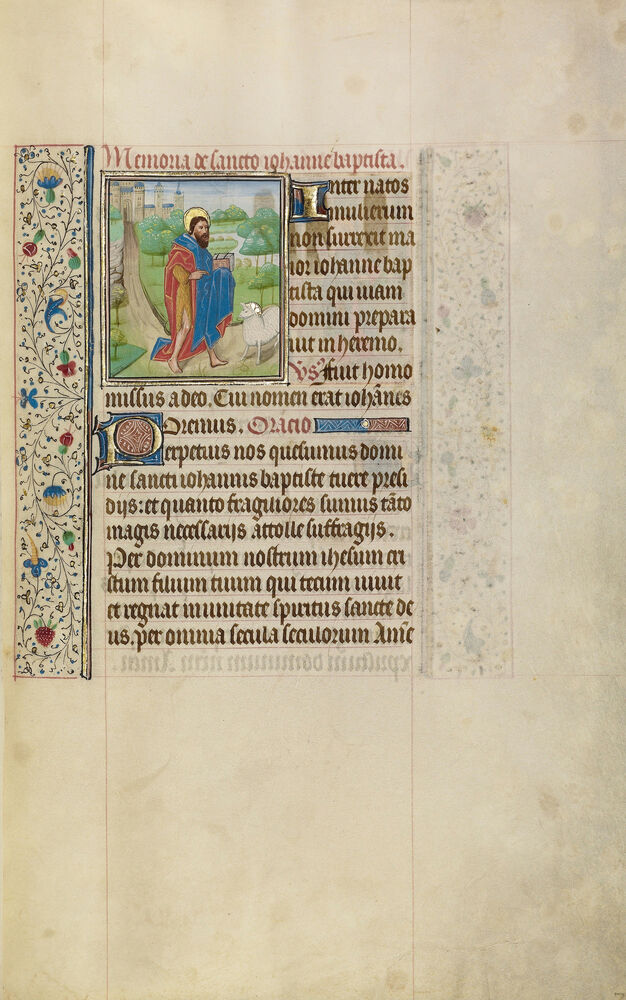 Memoria de sancto iohanne baptista.
Inter natos
mulierum
non surrexit ma
ior iohanne bap
tista qui uiam
domini prepara
uit in heremo.
Vs Fuit homo
missus a deo. Cui nomen erat ioh̄anes
Oremus. Oracio
Perpetuis nos quesumus domi
ne sancti iohannis baptiste tuere presi
dijs: et quanto fragiliores sumus tāto
magis necessarijs attolle suffragijs.
Per dominum nostrum ihesum cri
stum filium tuum qui tecum uiuit
et regnat in unitate spiritus sancte de
us. per omnia secula seculorum Amē